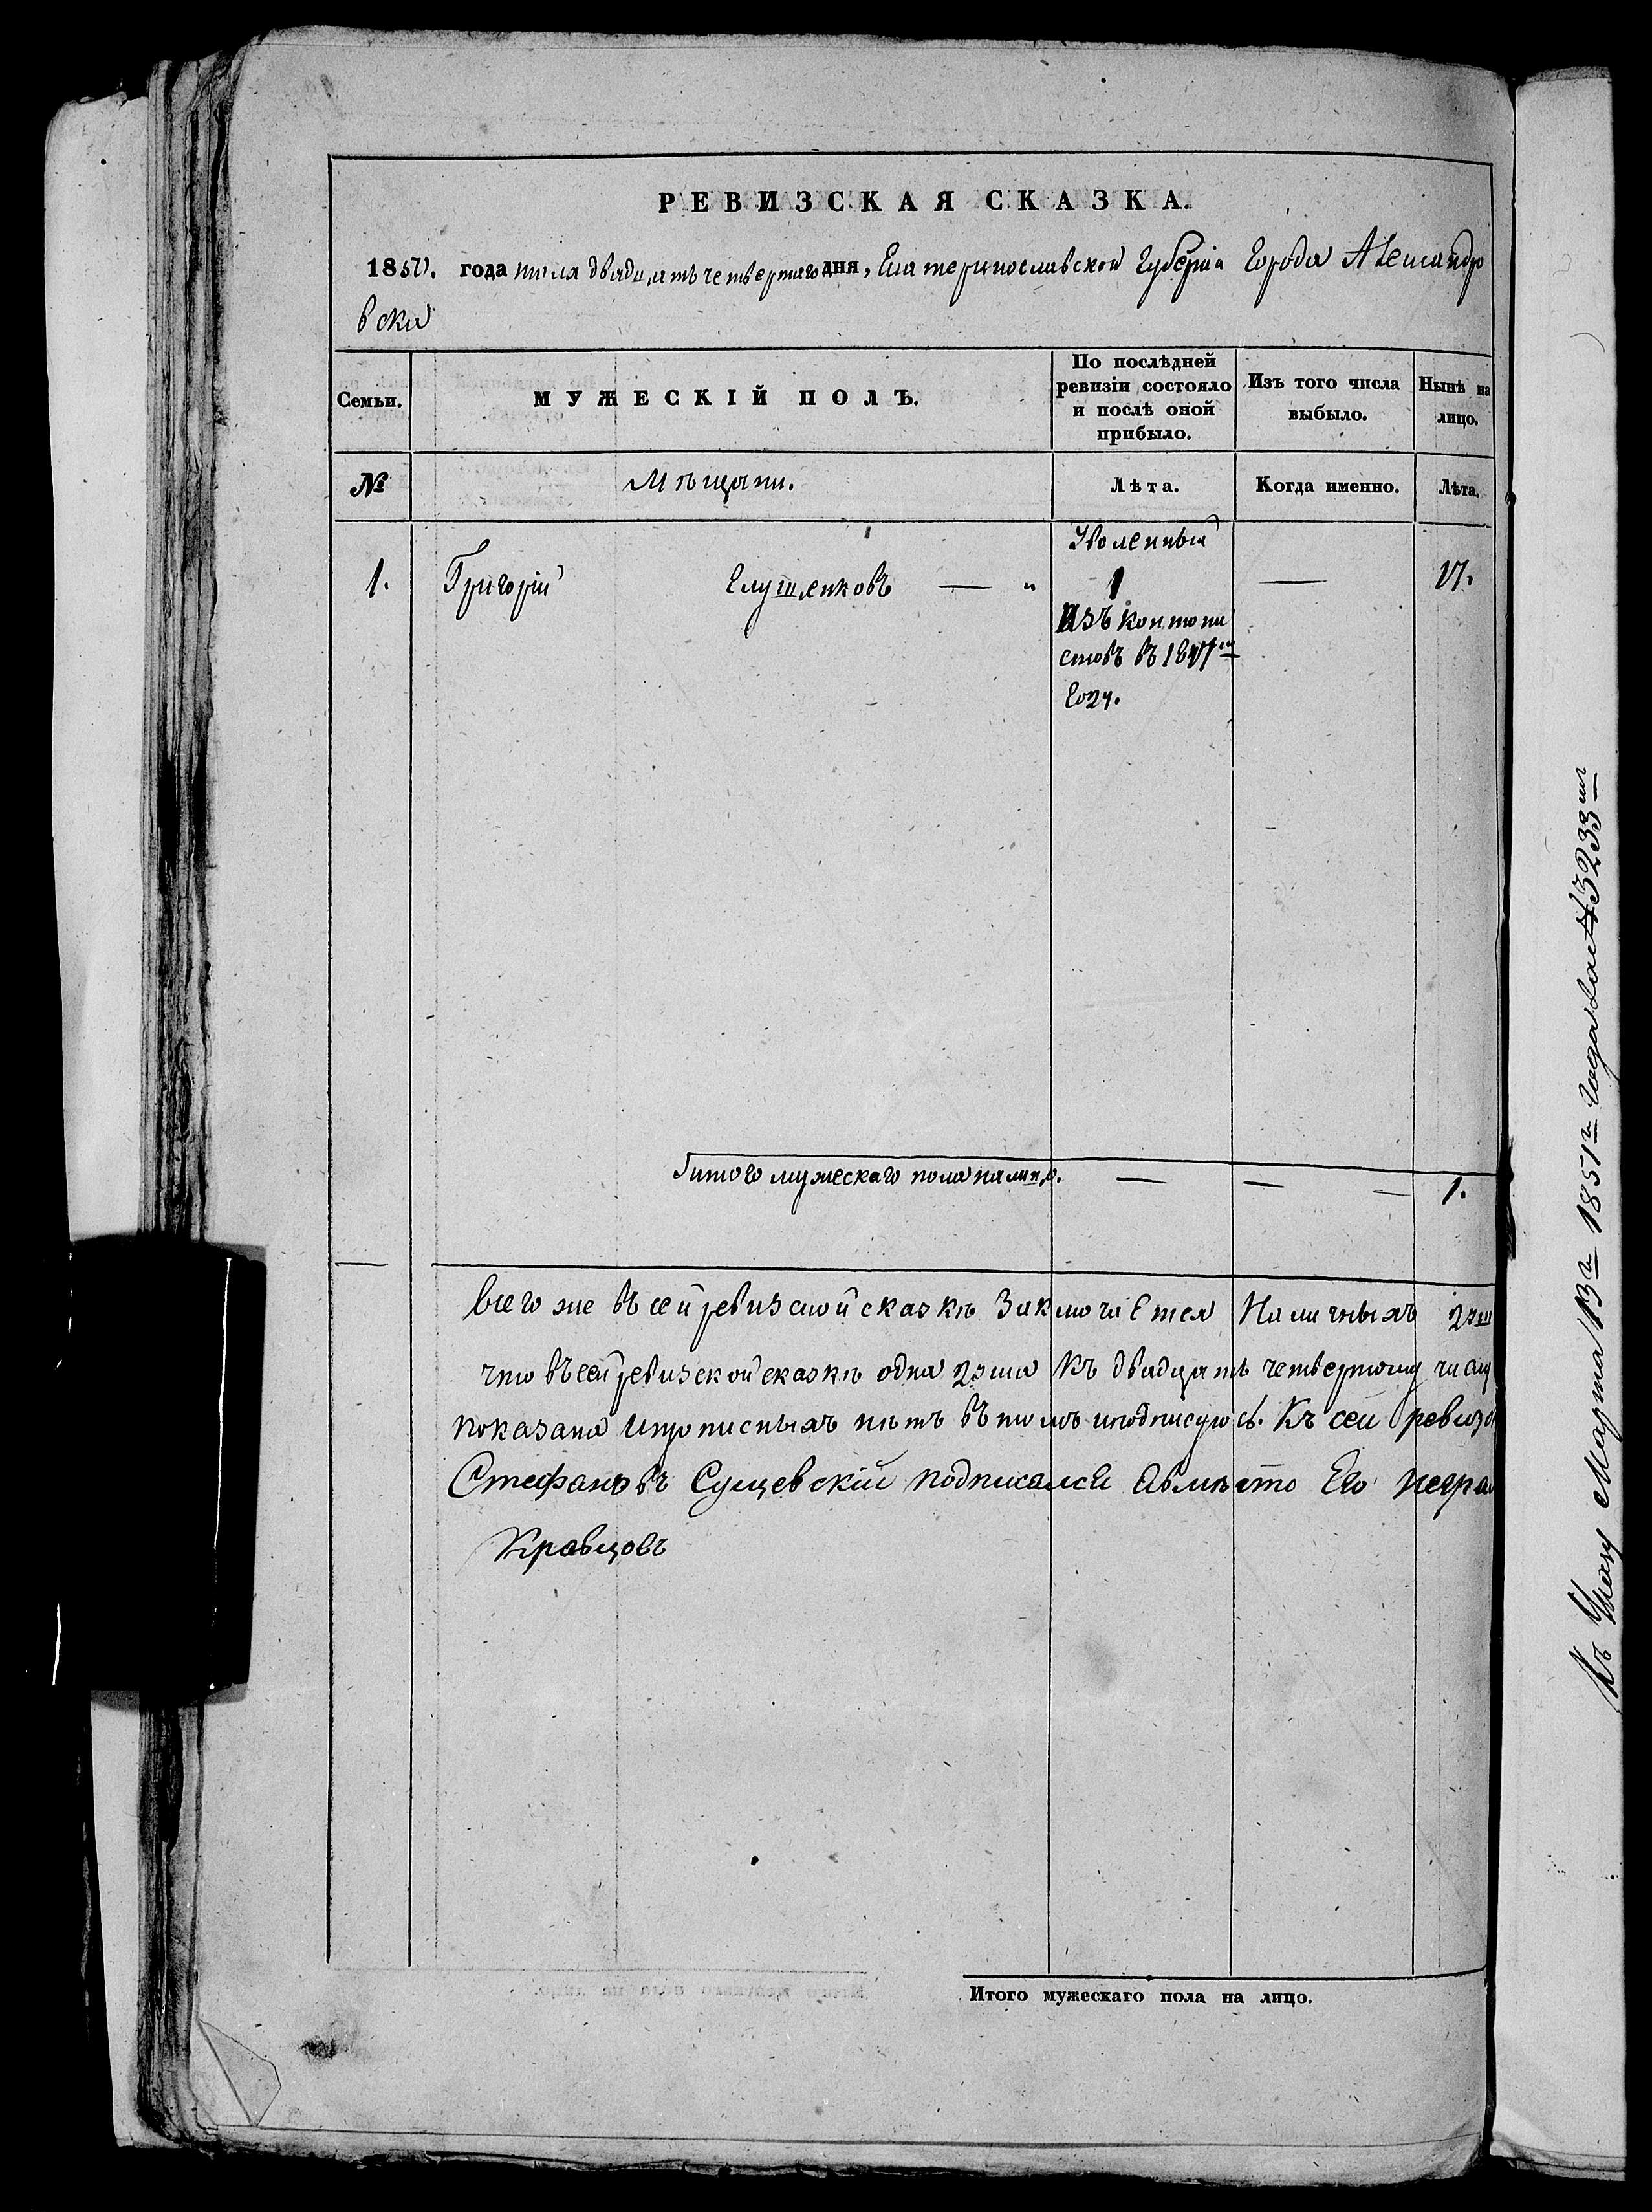 РЕВИЗСКАЯ СКАЗКА.
1850. года июля двадцать четвертаго дня, Екатеринославской Губерніи Города Александро
вска
Семьи.
МУЖЕСКІЙ ПОЛЪ.
По послѣдней
ревизіи состояло
и послѣ оной
прибыло.
Изъ того числа
выбыло.
Нынѣ на
лицо.
№
Мѣщани.
Лѣта.
Когда именно.
Лѣта.
Уволенный
1. Григорій Глущенковъ — „ 1 —
Изъ контони
стовъ въ
году.
Итого мужескаго пола налицо. — — — 1.
Всего же въ сей ревизской сказкѣ Заключается Наличныхъ
что въ сей ревизской сказкѣ одна душа Къ двадцать четвертому числу
показана ипрописныхъ нѣтъ въ томъ иподписуюсь. Къ сей ревизс
Стефановъ Сущевскій подписался Авмѣсто Его неграм
Кравцовъ
Итого мужескаго пола на лицо.
Къ Указу Марта 13го 1851го года 3233